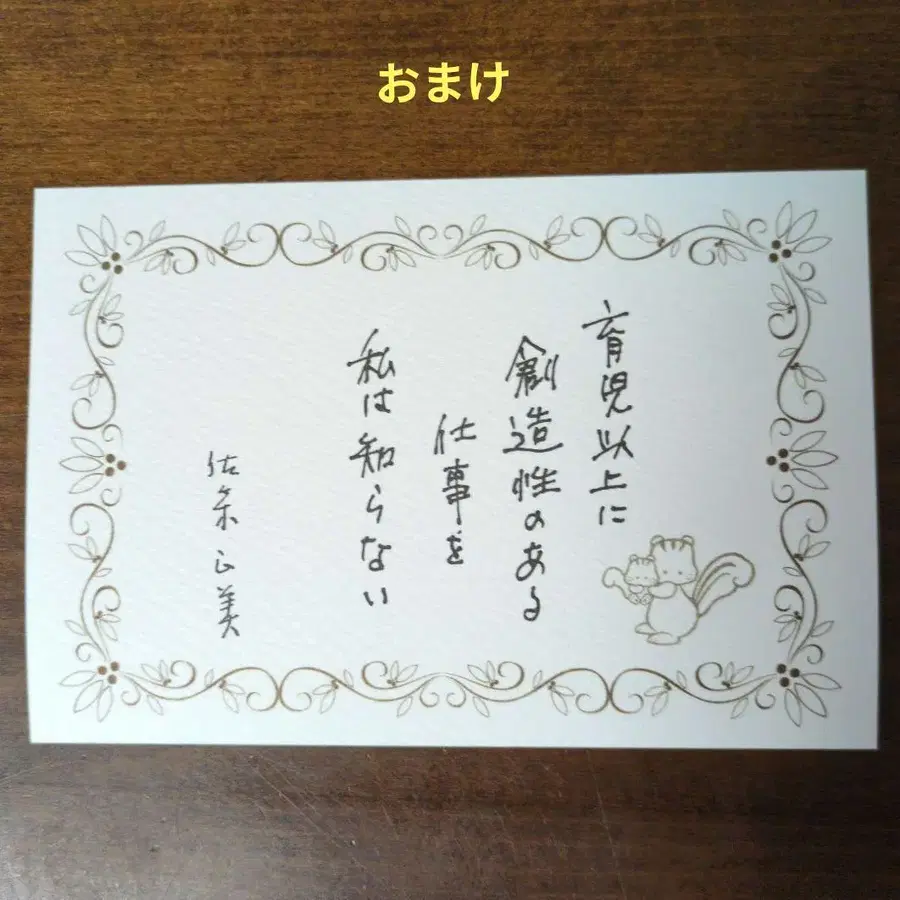 おまけ
育児以上に
創造性のある
仕事を
私は知らない
佐々木正美